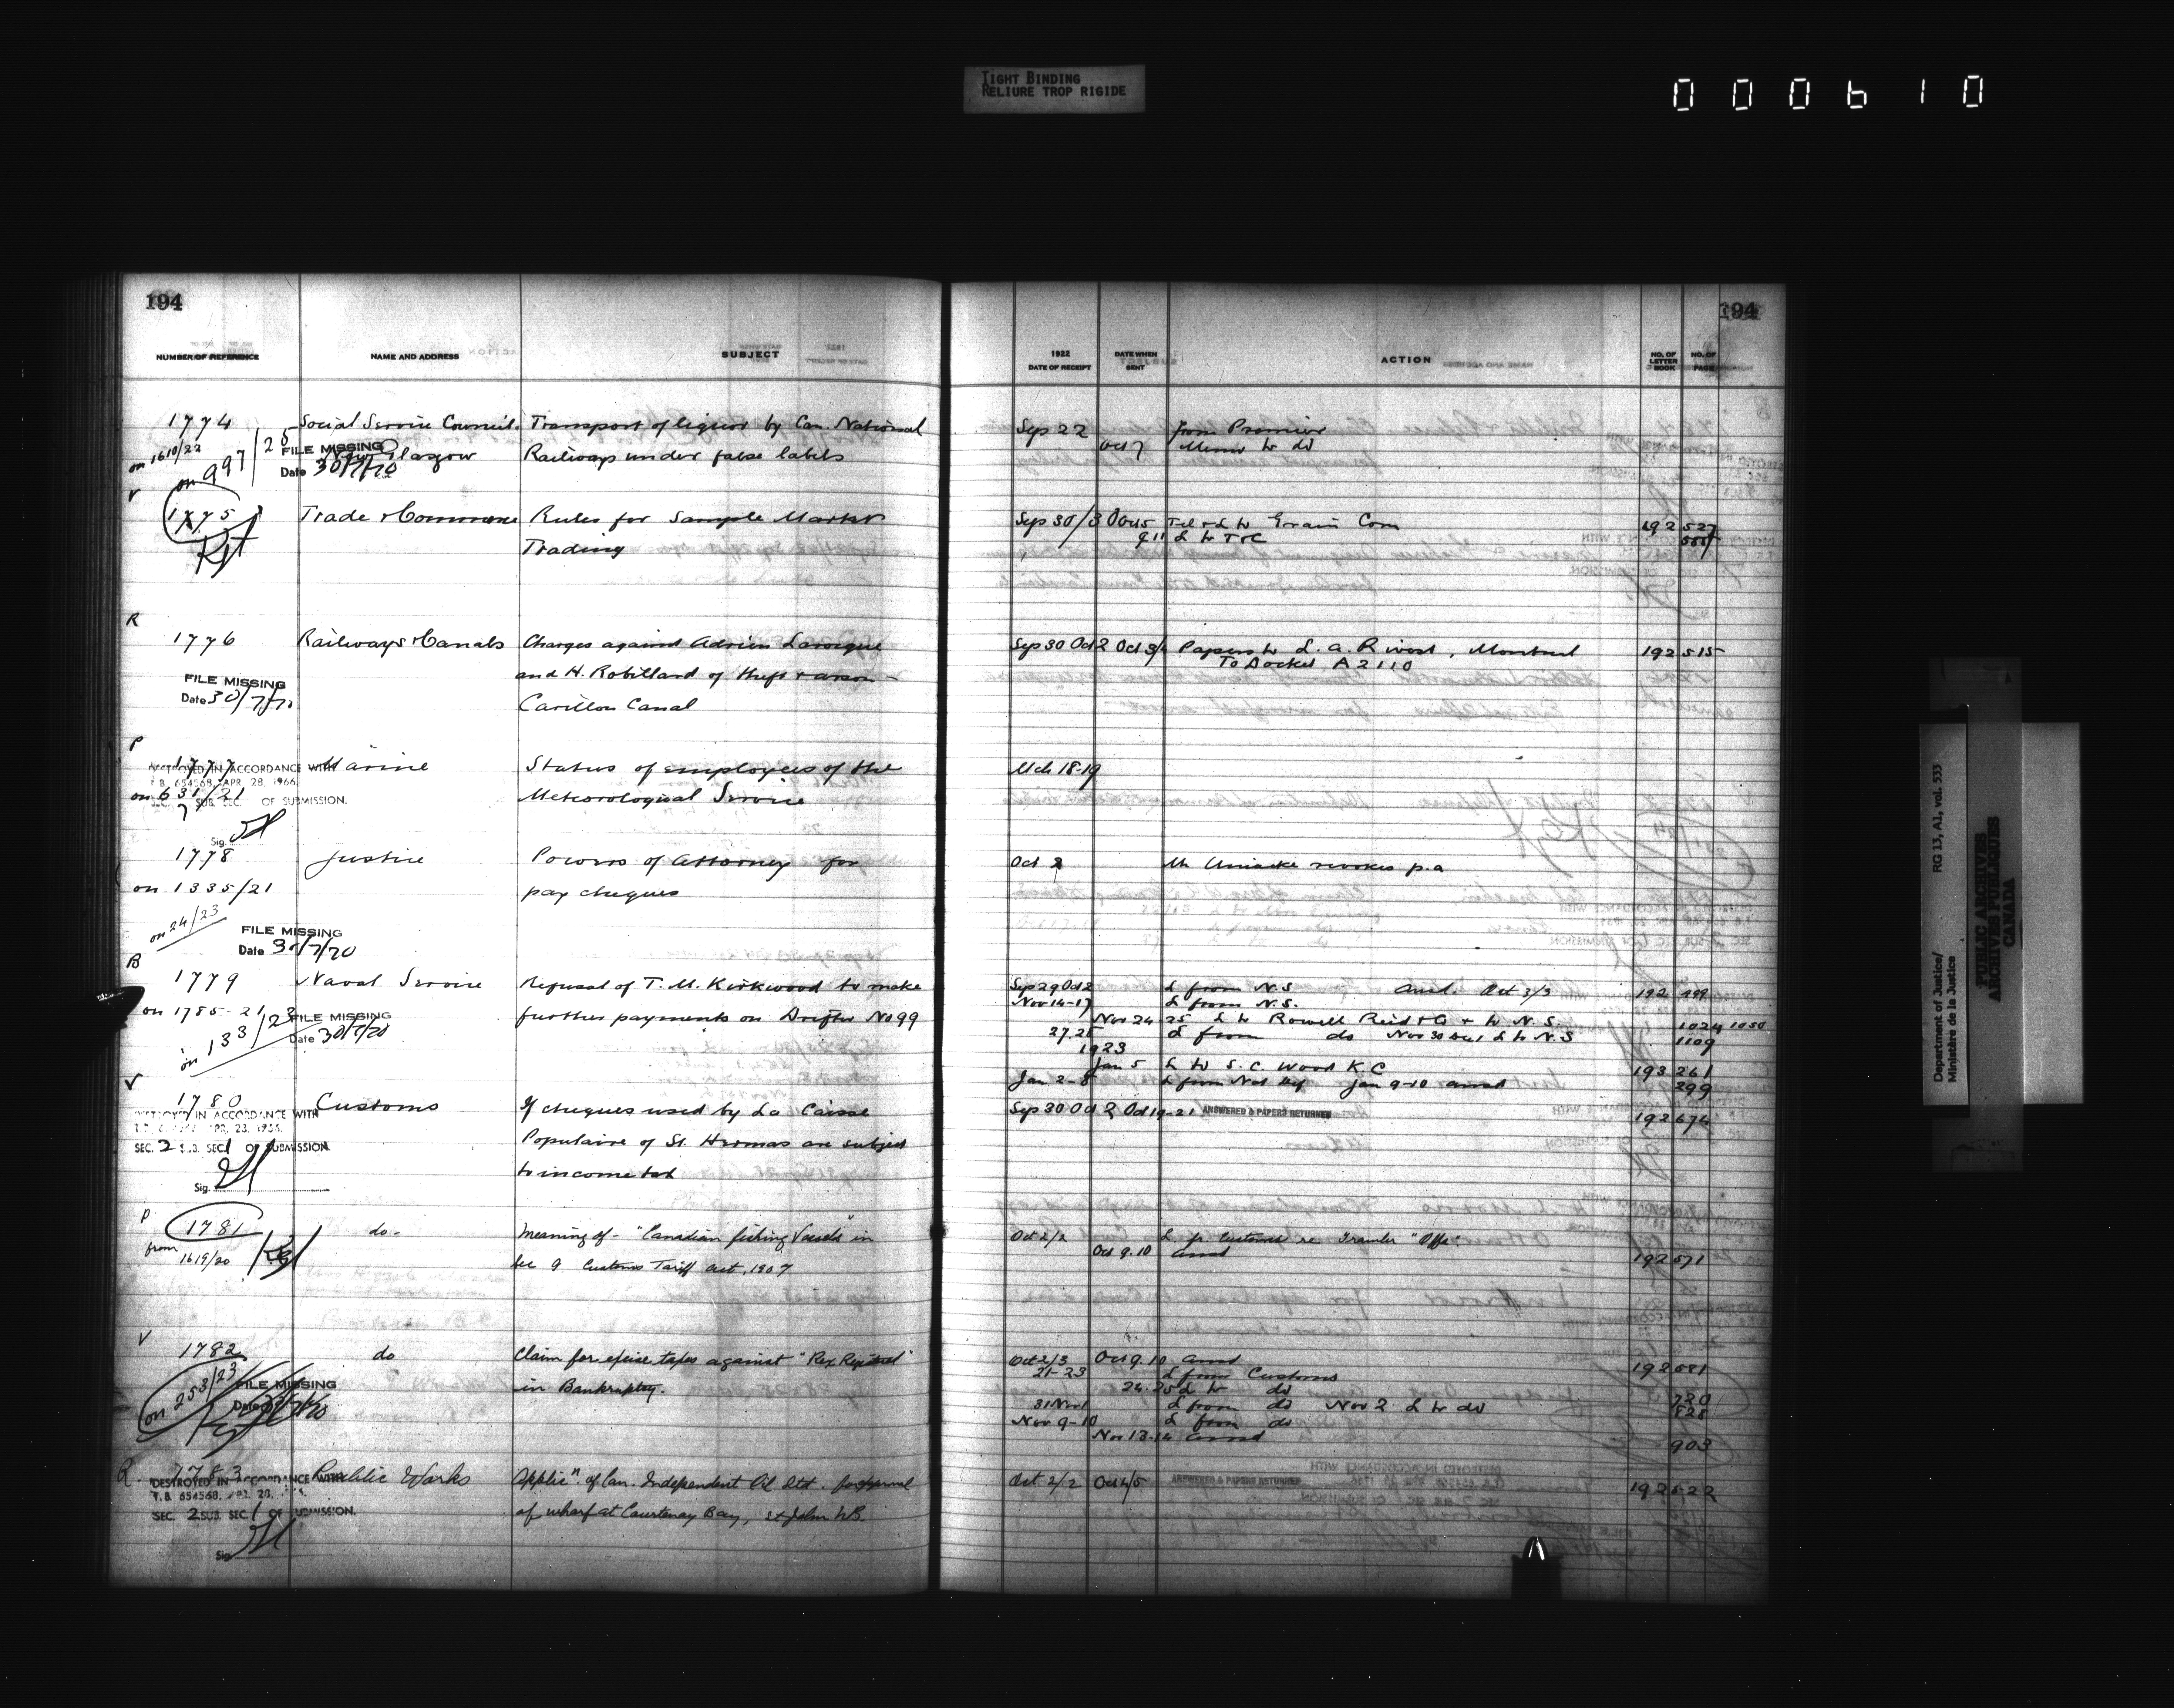 TIGHT BINDING
RELIURE TROP RIGIDE
000610
194
194
NUMBER OF REFERENCE NAME AND ADDRESS SUBJECT
1922
DATE OF RECEIPT DATE WHEN SENT ACTION NO. OF LETTER BOOK NO. OF PAGE
1774 Social Service Council. Transport of liquor by Can. National
on 1610/22 New Glasgow Railways under false labels
on 997/28
FILE MISSING
Date 30/7/70
Sep 22 from Premier
Oct 7 Memo to do
V
1775 Trade & Commerce Rules for Sample Market
Trading
Sep 30/3 Oct 5 Tel & L to Grain Com 192 527
9 11 L to T&C
R
1776 Railways & Canals Charges against Adrien Larocque
and H. Robillard of theft & arson -
Carillon Canal
FILE MISSING
Date 30/7/70
Sep 30 Oct 2 Oct 3/4 Papers to L. A. Rivest, Montreal 192 515
To Docket A 2110
P
1777 Marine Status of employees of the
Meteorological Service
DESTROYED IN ACCORDANCE WITH
T.B. 654568, APR. 28, 1966.
on 631/21
SEC. 7 SUB. SEC. OF SUBMISSION.
Sig.
Mch 18-19
1778 Justice Powers of Attorney for
on 1335/21 pay cheques
on 24/23
FILE MISSING
Date 30/7/70
Oct 2 Mr Uniacke revokes p.a
B
1779 Naval Service Refusal of T. M. Kirkwood to make
on 1785-21 further payments on Drifter No 99
on 133/23
FILE MISSING
Date 30/7/70
Sep 29 Oct 2 L from N.S Ansd. Oct 3/3 192 499
Nov 14-17 L from N.S.
Nov 24 25 L to Rowell Reid & Co + to N.S. 1024 1050
27.28 L from do Nov 30 Dec 1 L to N.S 1109
1923
Jan 5 L to S. C. Wood K.C 193 261
Jan 2-8 L from Nat Def Jan 9-10 ansd 299
V
1780 Customs If cheques used by La Caisse
Populaire of St. Hermas are subject
to income tax
DESTROYED IN ACCORDANCE WITH
SEC. 2 SUB. SEC. 1 OF SUBMISSION.
Sig.
Sep 30 Oct 2 Oct 19-21 ANSWERED & PAPERS RETURNED 192 674
P
1781 do - Meaning of - "Canadian fishing Vessels" in
from 1619/20 Sec 9 Customs Tariff Act, 1907
Oct 2/2 L fr. Customs re. Trawler "Offa".
Oct 9.10 ansd 192 571
V
1782 do Claim for excise taxes against "Rex Registered"
in Bankruptcy.
on 253/23
FILE MISSING
Date
Oct 2/3 Oct 9.10 ansd 192 581
21-23 L from Customs
24.25 L to do 720
31 Nov 1 L from do Nov 2 L to do 828
Nov 9-10 L from do
Nov 13-14 ansd 903
R.
1783 Public Works Applicn. of Can. Independent Oil Ltd. for approval
of wharf at Courtenay Bay, St John NB.
DESTROYED IN ACCORDANCE WITH
T.B. 654568, APR. 28,
SEC. 2 SUB. SEC. 1 OF SUBMISSION.
Sig.
Oct. 2/2 Oct 4/5 ANSWERED & PAPERS RETURNED 192 522
Department of Justice/ RG 13, A1, vol. 533
Ministère de la Justice
PUBLIC ARCHIVES
ARCHIVES PUBLIQUES
CANADA